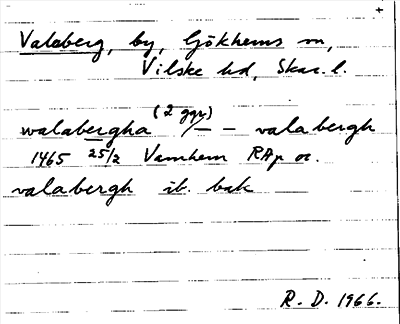 +
Valaberg, by, Gökhems sn,
Vilske hd, Skar. l.
(2 ggr)
walabergha — — valabergh
1465 25/2 Varnhem RAp or.
valabergh ib. bak
R. D. 1966.